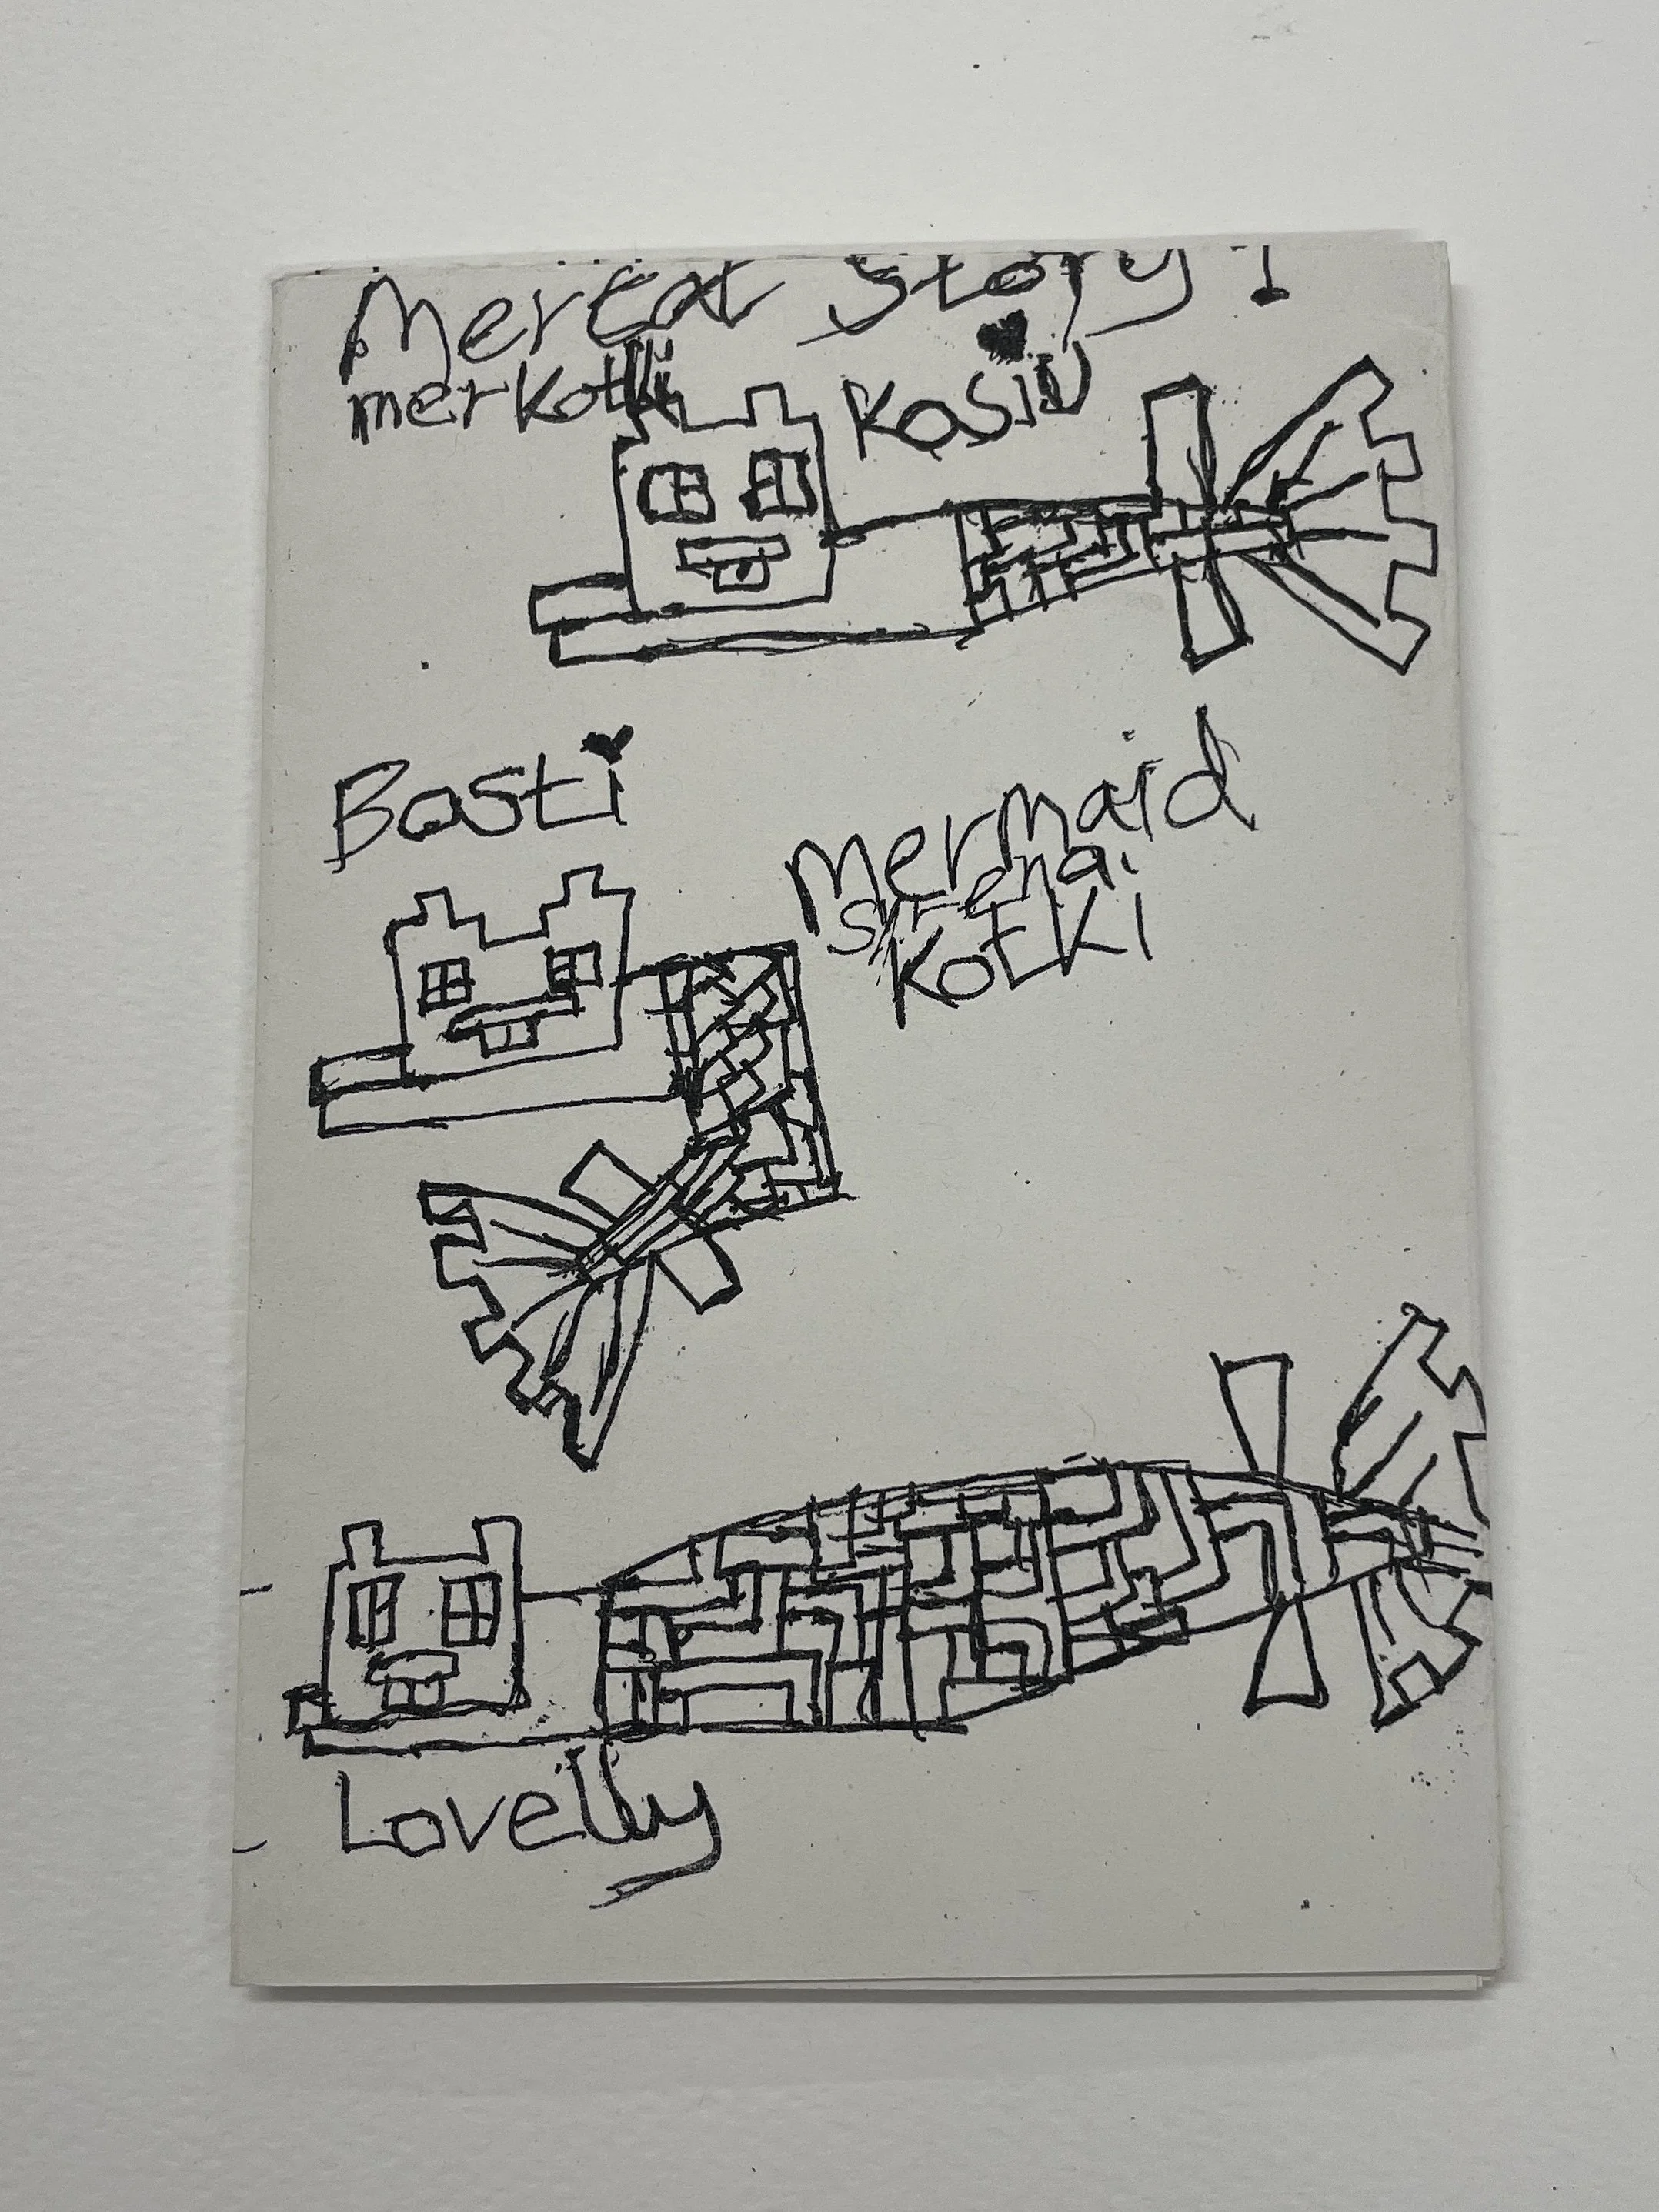 Mercat Story!
merkotki
Kasiu
Basti
mermaid
sirena.
KotKi
Lovelly